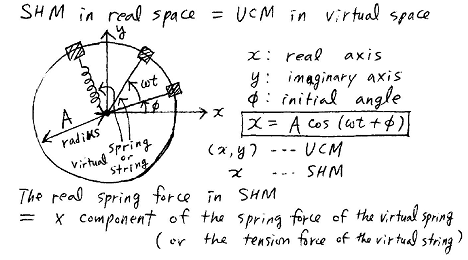 SHM in real space = UCM in virtual space
y
x: real axis
y: imaginary axis
ϕ: initial angle
x = A cos (ωt + ϕ)
(x, y) --- UCM
x --- SHM
ωt
ϕ
x
A
radius
virtual spring or string
The real spring force in SHM
= x component of the spring force of the virtual spring
(or the tension force of the virtual string)